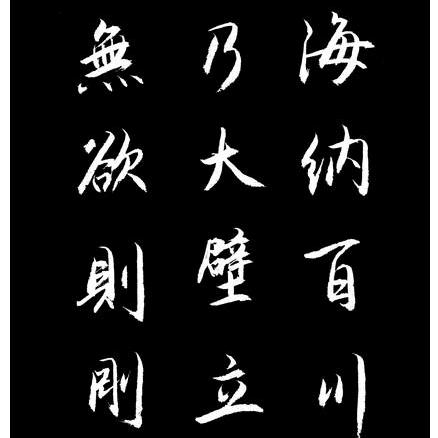 海納百川
乃大壁立
無欲則剛